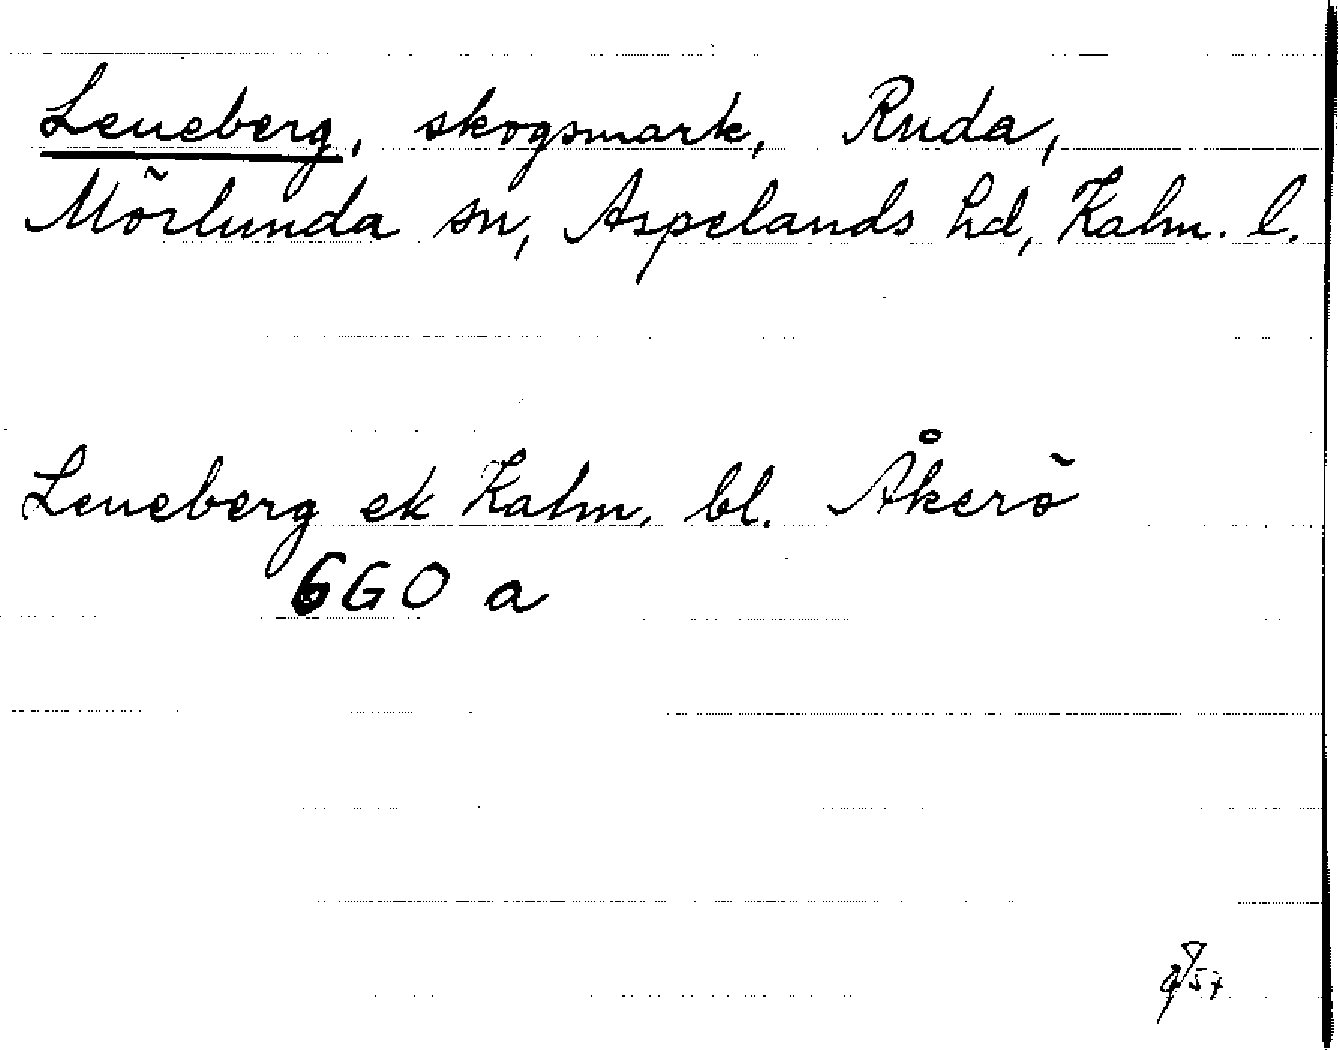 Leneberg, skogsmark, Ruda,
Mörlunda sn, Aspelands hd, Kalm. l.
Leneberg ek Kalm. bl. Åkerö
6G0 a